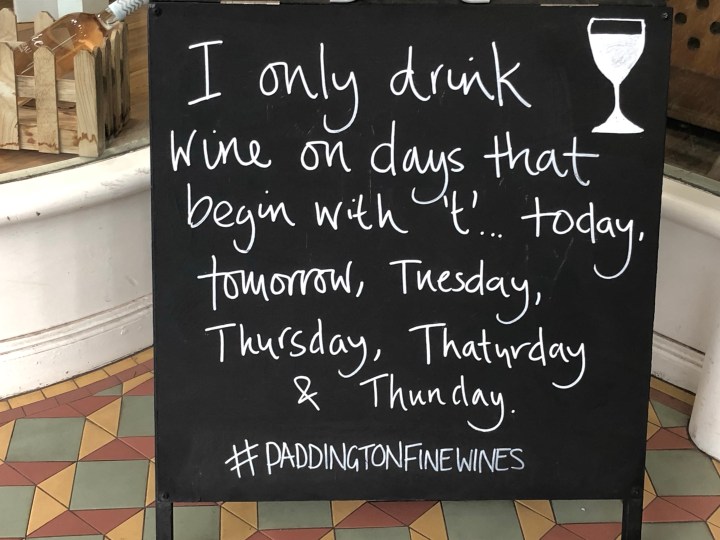 I only drink
wine on days that
begin with 't'... today,
tomorrow, Tuesday,
Thursday, Thaturday
& Thunday.
#PADDINGTONFINEWINES